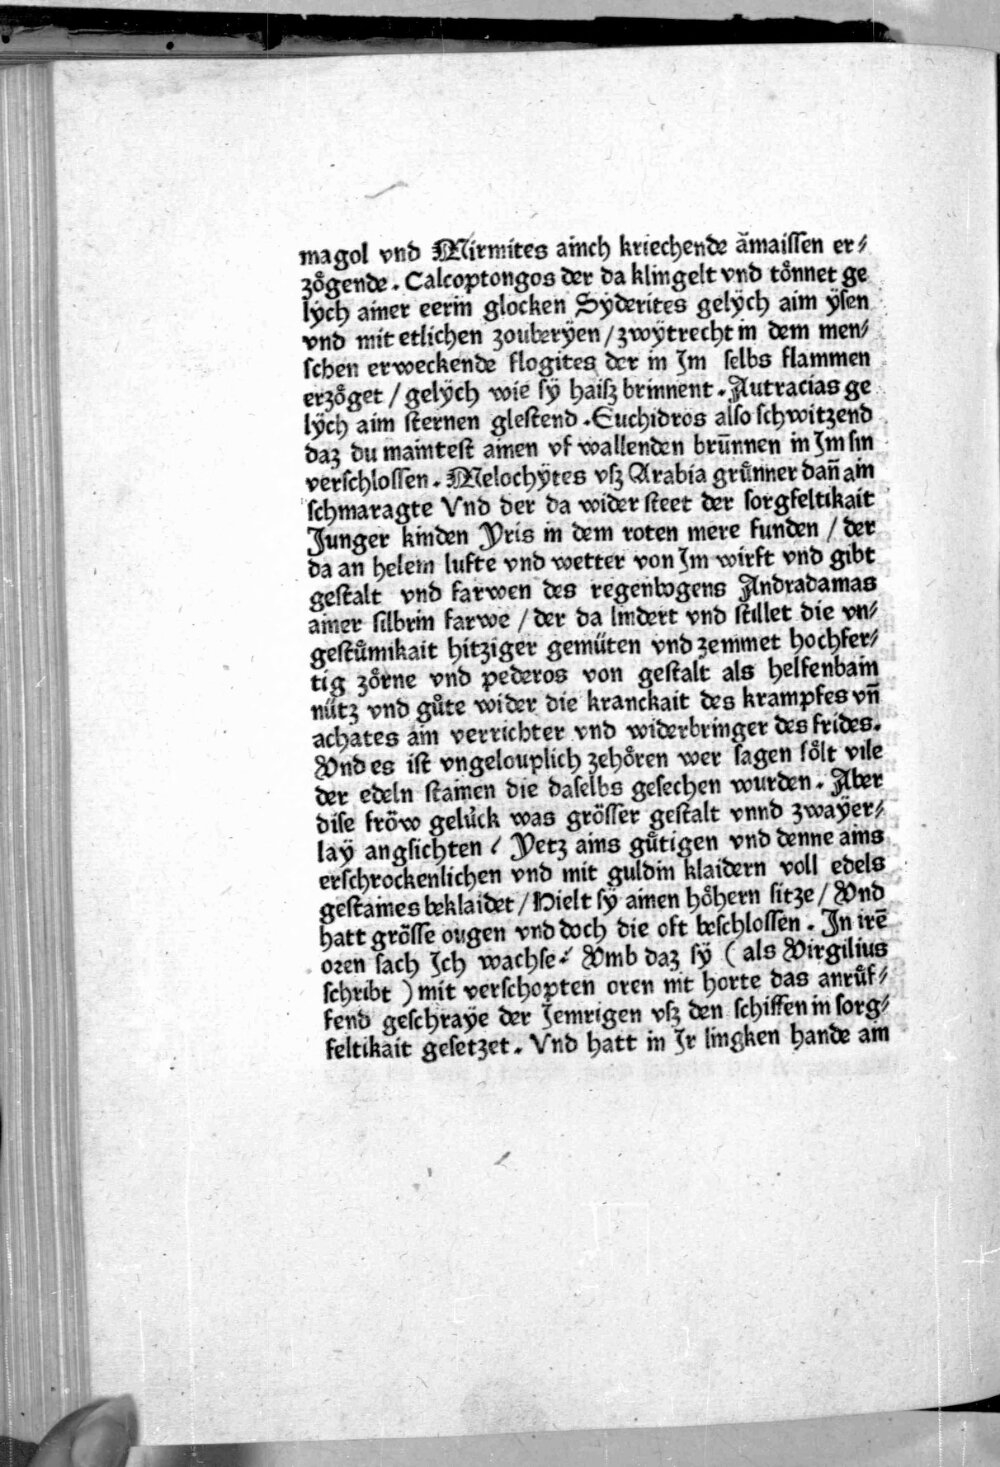 magol vnd Mirmites ainch kriechende ämaissen er⸗
zoͤgende . Calcoptongos der da klingelt vnd toͤnnet ge
lÿch ainer eerin glocken Sÿderites gelÿch aim ÿsen
vnd mit etlichen zouberÿen / zwÿtrecht in dem men⸗
schen erweckende flogites der in Im selbs flammen
erzoͤget / gelÿch wie sÿ haisz brinnent . Autracias ge
lÿch aim sternen glestend . Euchidros also schwitzend
daz du maintest ainen vf wallenden brūnnen in Im sin
verschlossen . Melochÿtes vsz Arabia gruͤnner dañ ain
schmaragte Vnd der da wider steet der sorgfeltikait
Junger kinden Yris in dem roten mere funden / der
da an helem lufte vnd wetter von Im wirft vnd gibt
gestalt vnd farwen des regenbogens Andradamas
ainer silbrin farwe / der da lindert vnd stillet die vn⸗
gestuͤmikait hitziger gemüten vnd zemmet hochfer⸗
tig zoͤrne vnd pederos von gestalt als helfenbain
nütz vnd guͤte wider die kranckait des krampfes vñ
achates ain verrichter vnd widerbringer des frides.
Vnd es ist vngelouplich zehoͤren wer sagen soͤlt vile
der edeln stainen die daselbs gesechen wurden . Aber
dise froͤw geluͤck was grösser gestalt vnnd zwaÿer⸗
laÿ angsichten / Yetz ains guͤtigen vnd denne ains
erschrockenlichen vnd mit guldin klaidern voll edels
gestaines beklaidet / Hielt sÿ ainen hoͤhern sitze / Vnd
hatt grösse ougen vnd doch die oft beschlossen . In irē
oren sach Ich wachse / Vmb daz sÿ ( als Virgilius
schribt ) mit verschopten oren nit horte das anruͤf⸗
fend geschraÿe der Jemrigen vsz den schiffen in sorg⸗
feltikait gesetzet . Vnd hatt in Ir lingken hande ain